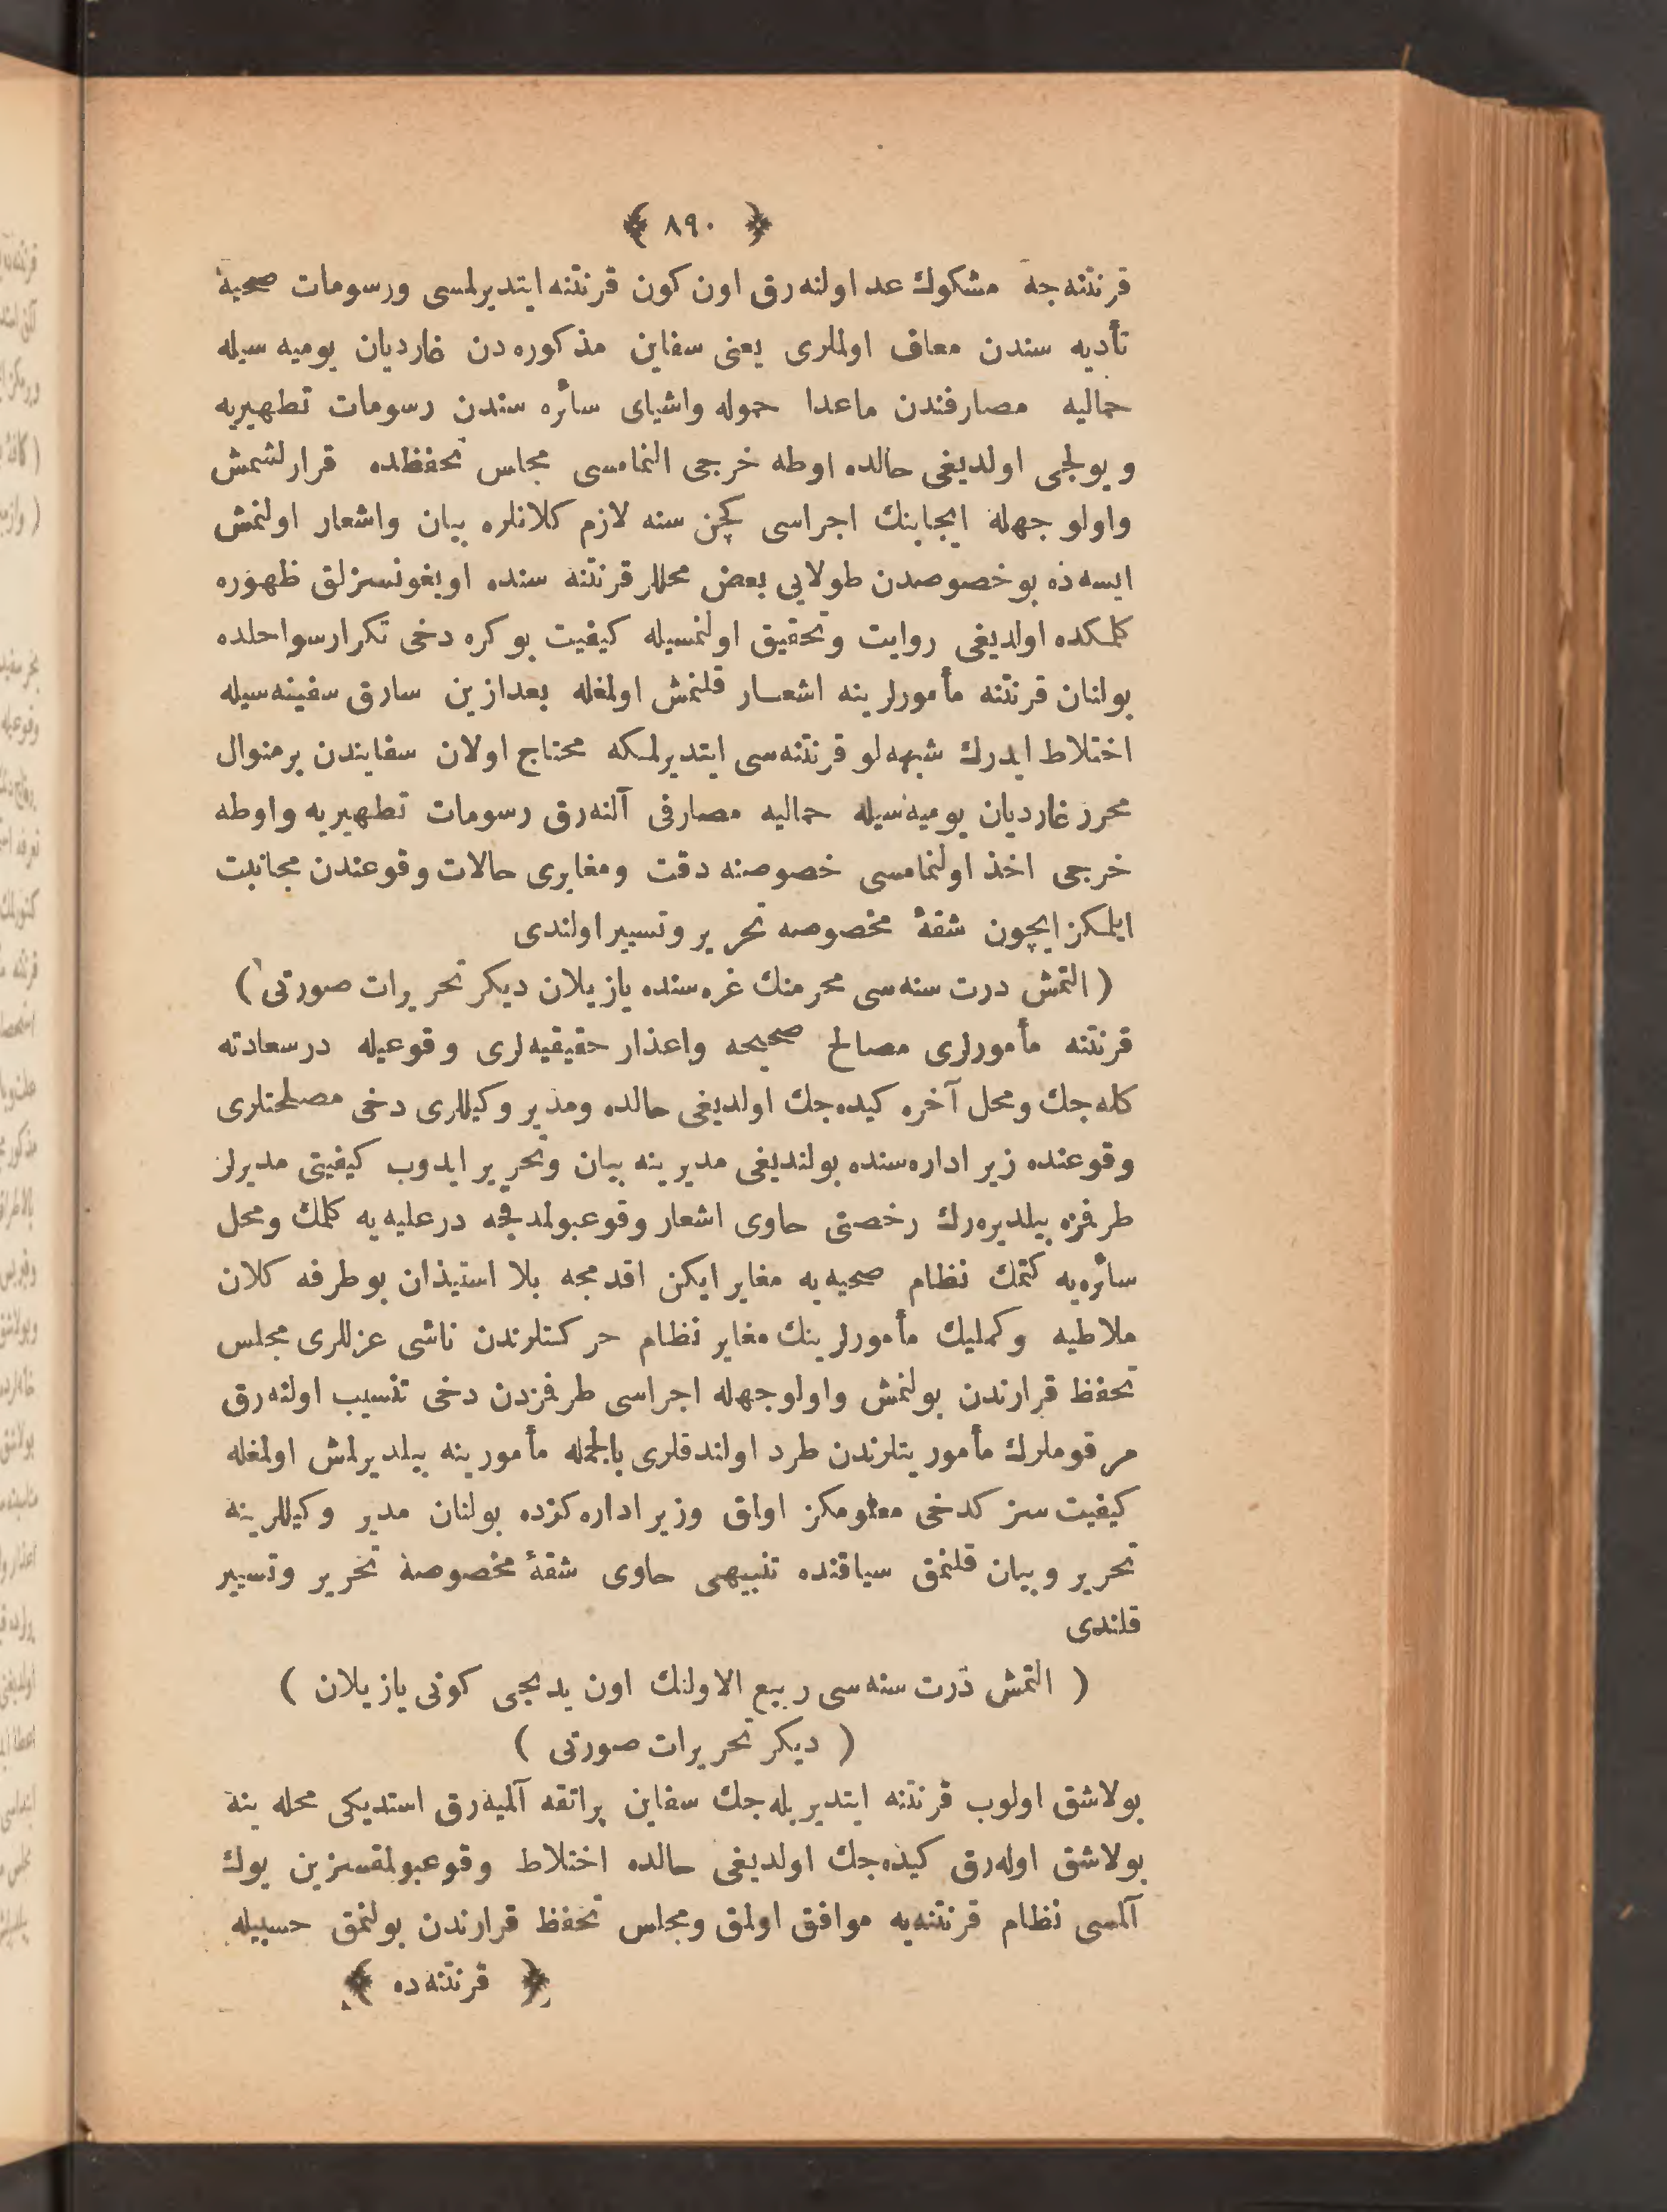 ﴿ ٨٩٠ ﴾
قرنتنه‌جه مشكوك عد اولنه‌رق اون كون قرنتنه ايتديرلمسى ورسومات صحيهٔ
تأديه سندن معاف اولملرى يعنى سفاين مذكوره‌دن غارديان يوميه سيله
حماليه مصارفندن ماعدا حموله واشياى سأره سندن رسومات تطهيريه
ويولجى اولديغى حالده اوطه خرجى النمامسى مجلس تحفظده قرارلشمش
واولو جهله ايجابنك اجراسى كچن سنه لازم كلانلره بيان واشعار اولنمش
ايسه‌ده بو خصوصدن طولايى بعض محللر قرنتنه سنده اويغونسزلق ظهوره
كلمكده اولديغى روايت وتحقيق اولنمسيله كيفيت بو كره دخى تكرار سواحلده
بولنان قرنتنه مأمورلرينه اشعار قلنمش اولمغله بعدازين سارق سفينه‌سيله
اختلاط ايدرك شبهه‌لو قرنتنه‌سى ايتديرلمكه محتاج اولان سفايندن برمنوال
محرر غارديان يوميه‌سيله حماليه مصارفى آلنه‌رق رسومات تطهيريه واوطه
خرجى اخذ اولنمامسى خصوصنه دقت ومغايرى حالات وقوعندن مجانبت
ايلمكزايچون شقهٔ مخصوصه تحرير وتسيير اولندى
( التمش درت سنه‌سى محرمنك غره‌سنده يازيلان ديكر تحريرات صورتى )
قرنتنه مأمورلرى مصالح صحيحه واعذار حقيقيه‌لرى وقوعيله درسعادته
كله‌جك ومحل آخره كيده‌جك اولديغى حالده ومدير وكيللرى دخى مصلحتلرى
وقوعنده زير اداره‌سنده بولنديغى مديرينه بيان وتحرير ايدوب كيفيتى مديرلر
طرفمزه بيلديره‌رك رخصتى حاوى اشعار وقوعبولمدقجه درعليه‌يه كلمك ومحل
سأره‌يه كتمك نظام صحيه‌يه مغاير ايكن اقدمجه بلا استيذان بو طرفه كلان
ملاطيه وكمليك مأمورلرينك مغاير نظام حركتلرندن ناشى عزللرى مجلس
تحفظ قرارندن بولنمش واولوجهله اجراسى طرفمزدن دخى تنسيب اولنه‌رق
مرقوملرك مأموريتلرندن طرد اولندقلرى بالجمله مأمورينه بيلديرلمش اولمغله
كيفيت سزكدخى معلومكز اولق وزير اداره‌كزده بولنان مدير وكيللرينه
تحرير وبيان قلنمق سياقنده تنبيهى حاوى شقهٔ مخصوصه تحرير وتسيير
قلندى
( التمش درت سنه‌سى ربيع الاولنك اون يدنجى كونى يازيلان )
( ديكر تحريرات صورتى )
بولاشق اولوب قرنتنه ايتديريله‌جك سفاين پراتقه آلميه‌رق استديكى محله ينه
بولاشق اوله‌رق كيده‌جك اولديغى حالده اختلاط وقوعبولمقسزين يوك
آلمسى نظام قرنتنه‌يه موافق اولمق ومجلس تحفظ قرارندن بولنمق حسبيله
﴿ قرنتنه‌ده ﴾